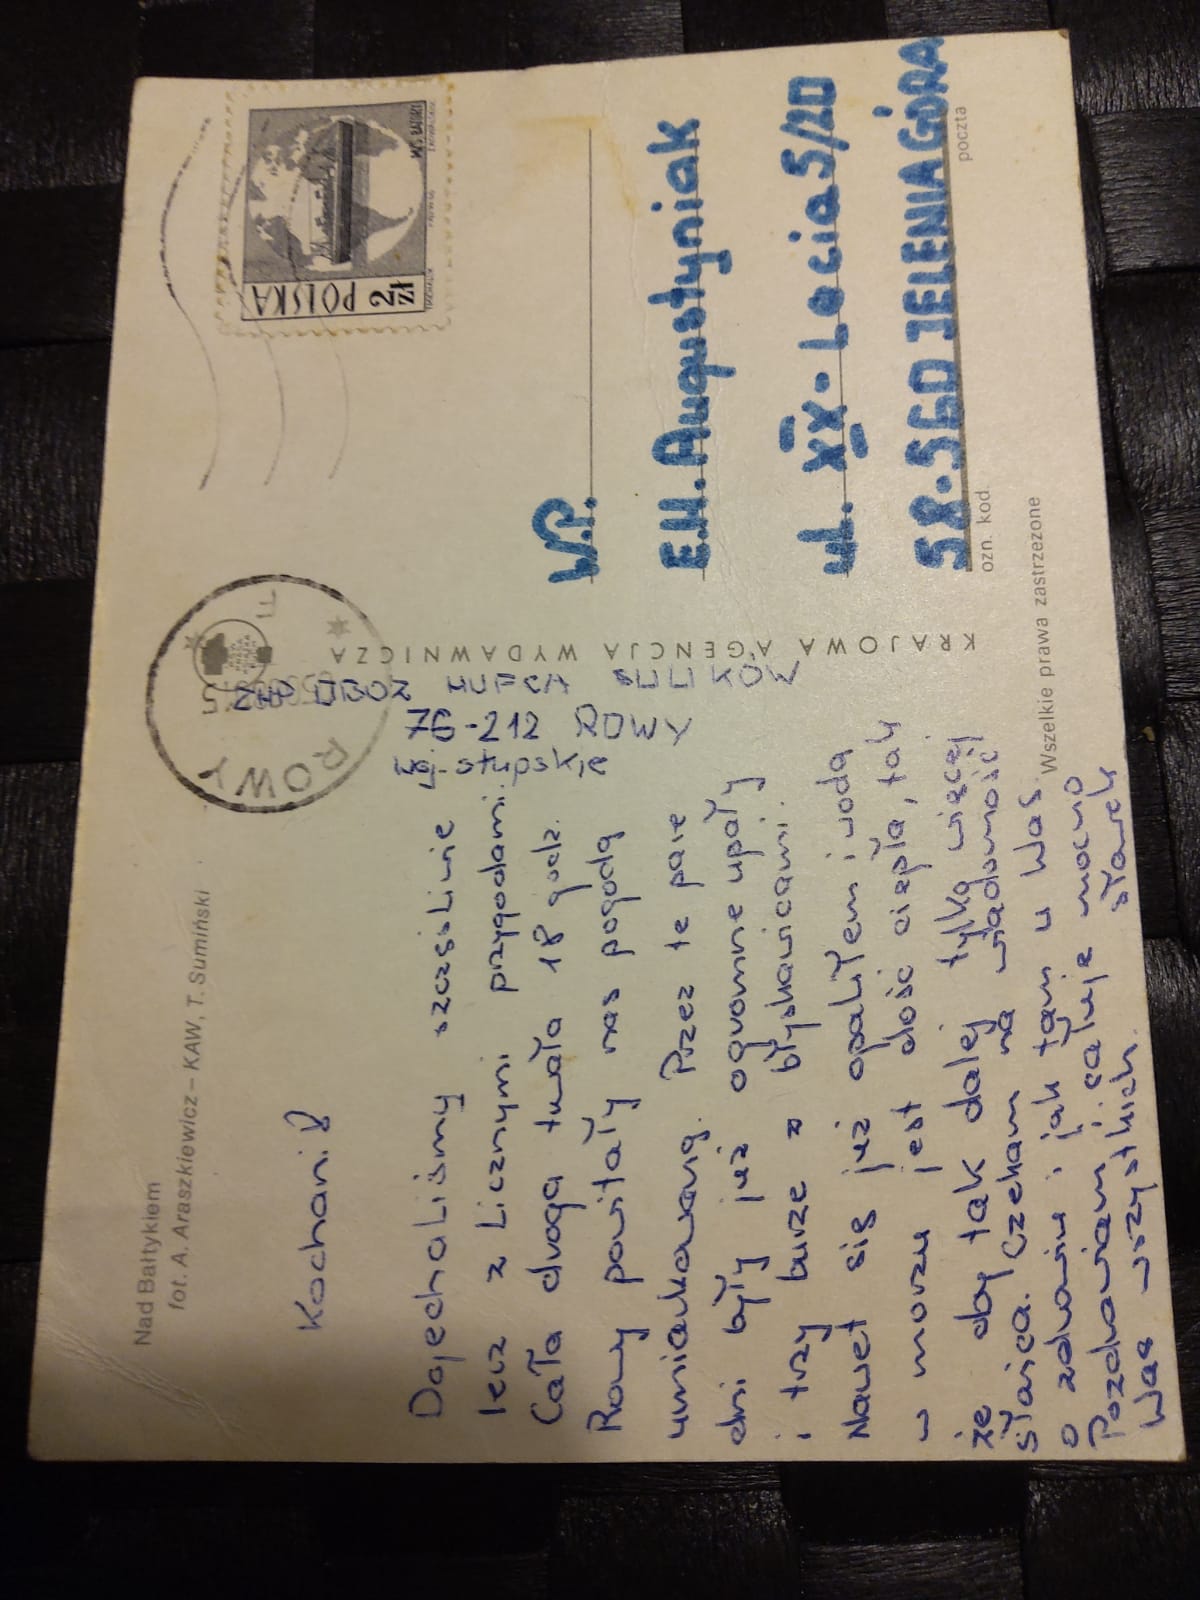 Nad Bałtykiem
fot. A. Araszkiewicz – KAW, T. Sumiński
Kochani!
Dojechaliśmy szczęśliwie
lecz z licznymi przygodami.
Cała droga trwała 18 godz.
Rowy powitały nas pogodą
umiarkowaną. Przez te parę
dni były już ogromne upały
i trzy burze z błyskawicami.
Nawet się już opaliłem i woda
w morzu jest dość ciepła, tak
że oby tak dalej tylko więcej
słońca. Czekam na wiadomość
o zdrowiu i jak tam u Was.
Pozdrawiam i całuję mocno
Was wszystkich. Sławek
ROWY
ZHP OBÓZ HUFCA
76-212 ROWY
woj. słupskie
KRAJOWA AGENCJA WYDAWNICZA
Wszelkie prawa zastrzeżone
POLSKA
2 ZŁ
M/S BATORY
W.P.
E.H. Augustyniak
ul. XX-Lecia 5/20
58-560 JELENIA GÓRA
ozn. kod.
poczta